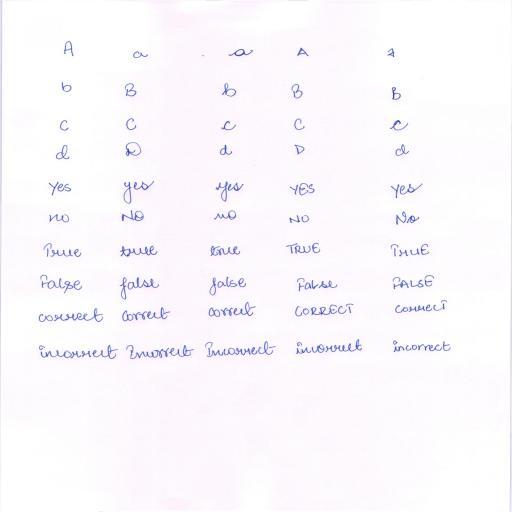 A a a A a
b B b B B
C C c C c
d D d D d
Yes yes yes YES yes
no NO no NO No
True true true TRUE THUE
False false false False FALSE
correct correct correct CORRECT correct
incorrect Incorrect Incorrect incorrect incorrect